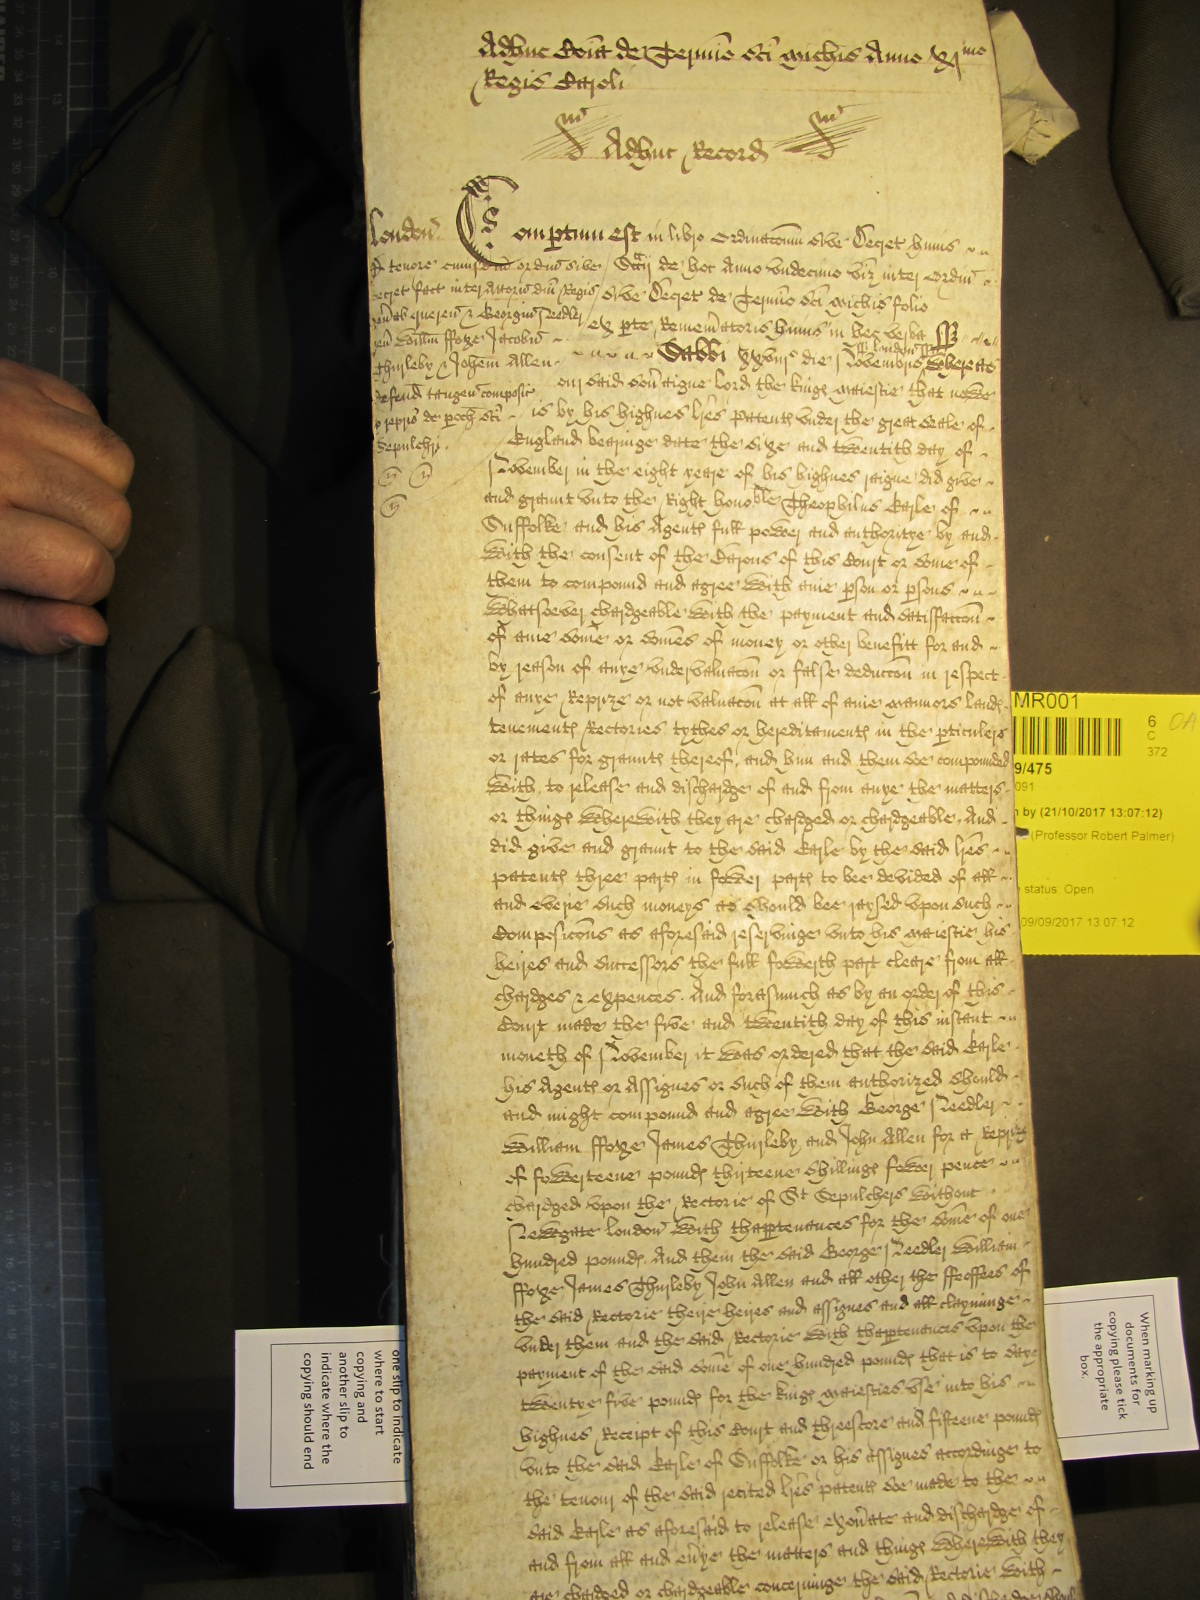 Adhuc Coïa de Termio Sci Michis Anno xjmo
Regis Caroli
Adhuc Record
London
Compertum est in libro Ordinaconu sive Decret huius
A tenore cuiusdm ordinis sive
Sccij de hoc Anno undecimo vizt inter Ordin
decret fact inter Attorn dni Regis
sive Decret de Termio Sci Michis folio
ex pte Remematoris huius in hec verba ss
quer & Georgiu Needler
Willm ffoxe Jacobu
Thurleby & Johem Allen
defend tangen composic
p repris de poch Sci
Sepulchri.
Sabbi xxviijo die Novembris Whereas
London ss
our said sovaigne Lord the Kings Maiestie that nowe
is by his highnes lres patents under the great Seale of
England bearinge date the sixe and twentith day of
November in the eight yeare of his highnes raigne did give
and graunt unto the Right honoble Theophilus Earle of
Suffolke and his Agents full power and authoritye by and
with the consent of the Barons of this Court or some of
them to compound and agree with anie pson or psons
whatsoever chardgeable with the payment and satisfaccon
of anie some or somes of money or other benefitt for and
by reason of anye undervaluacon or false deduccon in respect
of anye Reprize or not valuacon at all of anie mannors lands
tenements Rectories tythes or hereditaments in the pticulers
or rates for graunts thereof, and him and them soe compounded
with, to release and dischardge of and from anye the matters
or things wherewith they are chardged or chardgeable, And
did give and graunt to the said Earle by the said lres
patents three parts in fower parts to bee devided of all
and everie such moneys as should bee raysed upon such
Composicons as aforesaid reservinge unto his Maiestie his
heires and successors the full fowerth part cleare from all
chardges & expences. And forasmuch as by an order of this
Court made the five and twentith day of this instant
moneth of November it was ordered that the said Earle
his Agents or Assignes or such of them authorized should
and might compound and agree with George Needler
William ffoxe James Thurleby and John Allen for a Reprize
of fowerteene pounds thirteene shillings fower pence
chardged upon the Rectorie of St Sepulchers without
Newgate London with thapptenances for the some of one
hundred pounds. And them the said George Needler William
ffoxe James Thurleby John Allen and all other the ffeoffees of
the said Rectorie theire heires and assignes and all clayminge
under them and the said Rectorie with thapptenances upon the
payment of the said some of one hundred pounds that is to saye
twentye five pounds for the Kings Maiesties use into his
highnes Receipt of this Court and threescore and fifteene pounds
unto the said Earle of Suffolke or his assignes accordinge to
the tenour of the said recited lres patents soe made to the
said Earle as aforesaid to release exonate and dischardge of
and from all and evye the matters and things wherewith they
are chardged or chardgeable concerninge the said Rectorie with
MR001
6
C
372
9/475
091
by (21/10/2017 13:07:12)
(Professor Robert Palmer)
status: Open
09/09/2017 13:07:12
When marking up
documents for
copying please tick
the appropriate
box.
one slip to indicate
where to start
copying and
another slip to
indicate where the
copying should end